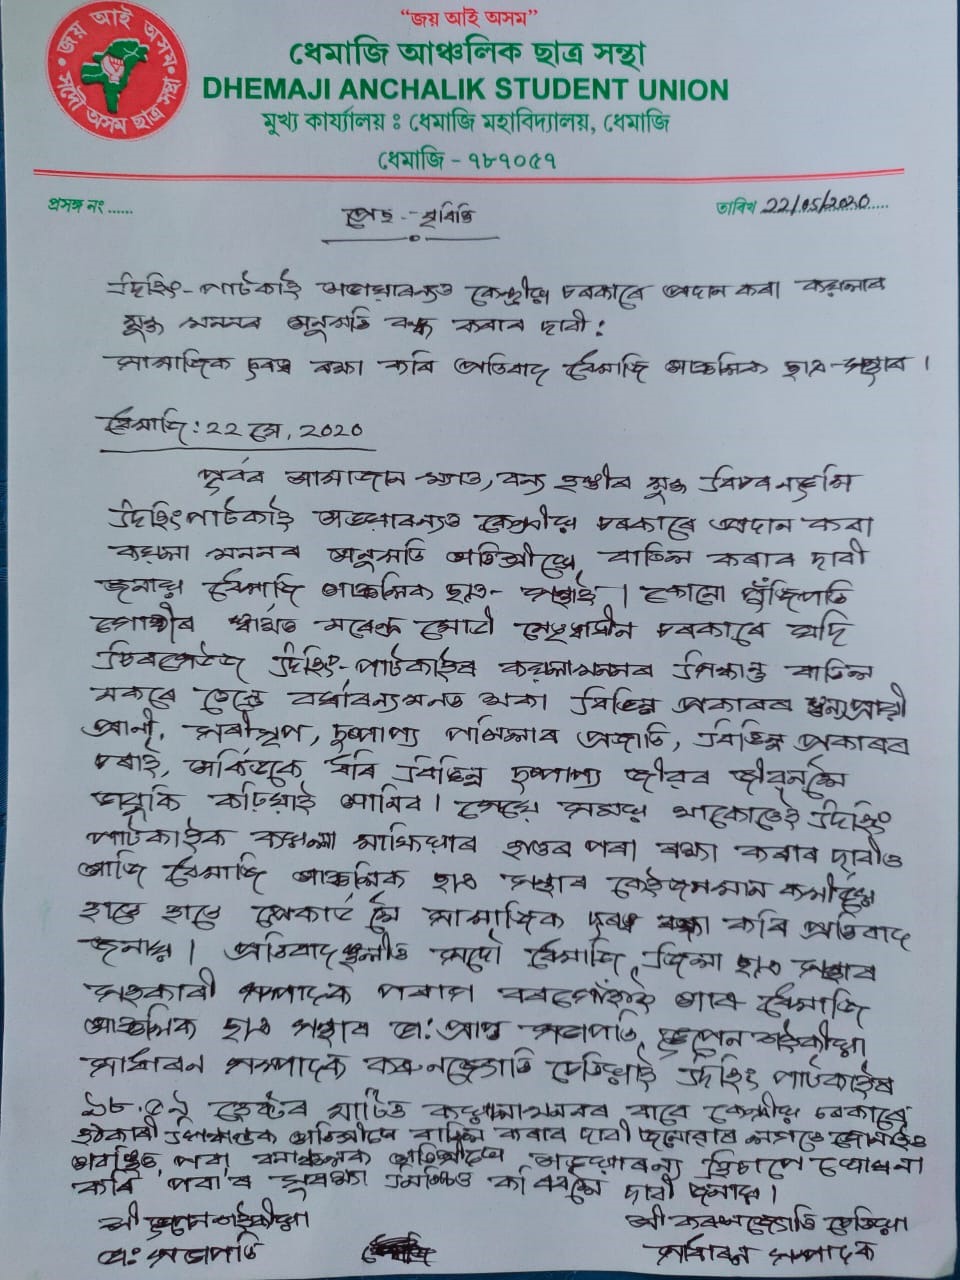 জয় আই অসম
সদৌ অসম ছাত্ৰ সন্থা
“জয় আই অসম”
ধেমাজি আঞ্চলিক ছাত্ৰ সন্থা
DHEMAJI ANCHALIK STUDENT UNION
মুখ্য কাৰ্য্যালয় ঃ ধেমাজি মহাবিদ্যালয়, ধেমাজি
ধেমাজি - ৭৮৭০৫৭
প্ৰসঙ্গ নং ......
তাৰিখ 22/05/2020
প্ৰেছ - বিবৃতি
দিহিং-পাটকাই অভয়াৰন্যত কেন্দ্ৰীয় চৰকাৰে প্ৰদান কৰা কয়লাৰ
মুক্ত খননৰ অনুমতি বন্ধ কৰাৰ দাবী :
সামাজিক দূৰত্ব ৰক্ষা কৰি প্ৰতিবাদ ধেমাজি আঞ্চলিক ছাত্ৰ-সন্থাৰ ।
ধেমাজি : 22 মে, 2020
পূৰ্বৰ আমাজান খ্যাত, বন্য হস্তীৰ মুক্ত বিচৰনভূমি
দিহিংপাটকাই অভয়াৰন্যত কেন্দ্ৰীয় চৰকাৰে প্ৰদান কৰা
কয়লা খননৰ অনুমতি অতিশীঘ্ৰে বাতিল কৰাৰ দাবী
জনায় ধেমাজি আঞ্চলিক ছাত্ৰ- সন্থাই । কোনো পুঁজিপতি
গোষ্ঠীৰ স্বাৰ্থত নৰেন্দ্ৰ মোদী নেতৃত্বাধীন চৰকাৰে যদি
দিহিং-পাটকাইৰ কয়লাখননৰ সিদ্ধান্ত বাতিল
নকৰে তেন্তে বৰ্ষাৰন্যখনত থকা বিভিন্ন প্ৰকাৰৰ স্তন্যপায়ী
প্ৰানী, সৰীসৃপ, দুষ্প্ৰাপ্য প্ৰজাতি, বিভিন্ন প্ৰকাৰৰ
চৰাই, ধৰি বিভিন্ন দুষ্প্ৰাপ্য জীৱৰ জীৱনলৈ
ভাবুকি কঢ়িয়াই আনিব । সময় থাকোতেই দিহিং
পাটকাইক কয়লা মাফিয়াৰ হাতৰ পৰা ৰক্ষা কৰাৰ দাবীত
আজি ধেমাজি আঞ্চলিক ছাত্ৰ সন্থাৰ কেইজনমান কৰ্মীয়ে
হাতে হাতে প্লেকাৰ্ড লৈ সামাজিক দূৰত্ব ৰক্ষা কৰি প্ৰতিবাদ
জনায় । প্ৰতিবাদস্থলীত সদৌ ধেমাজি জিলা ছাত্ৰ সন্থাৰ
সহকাৰী সম্পাদক পৰাগ বৰগোঁহাই আৰু ধেমাজি
আঞ্চলিক ছাত্ৰ সন্থাৰ ভা: প্ৰাপ্ত সভাপতি, ভূপেন শইকীয়া
সাধাৰন সম্পাদক কৰুনজ্যোতি চেতিয়াই দিহিং পাটকাইৰ
৯৮.৫৯ হেক্টৰ মাটিত কয়লাখননৰ বাবে কেন্দ্ৰীয় চৰকাৰে
অতিশীঘ্ৰে বাতিল কৰাৰ দাবী জনোৱাৰ লগতে
অভয়াৰন্য হিচাপে ঘোষনা
কৰি দাবী জনায় ।
শ্ৰী ভূপেন শইকীয়া
ভা: সভাপতি
শ্ৰী কৰুণজ্যোতি চেতিয়া
সাধাৰন সম্পাদক